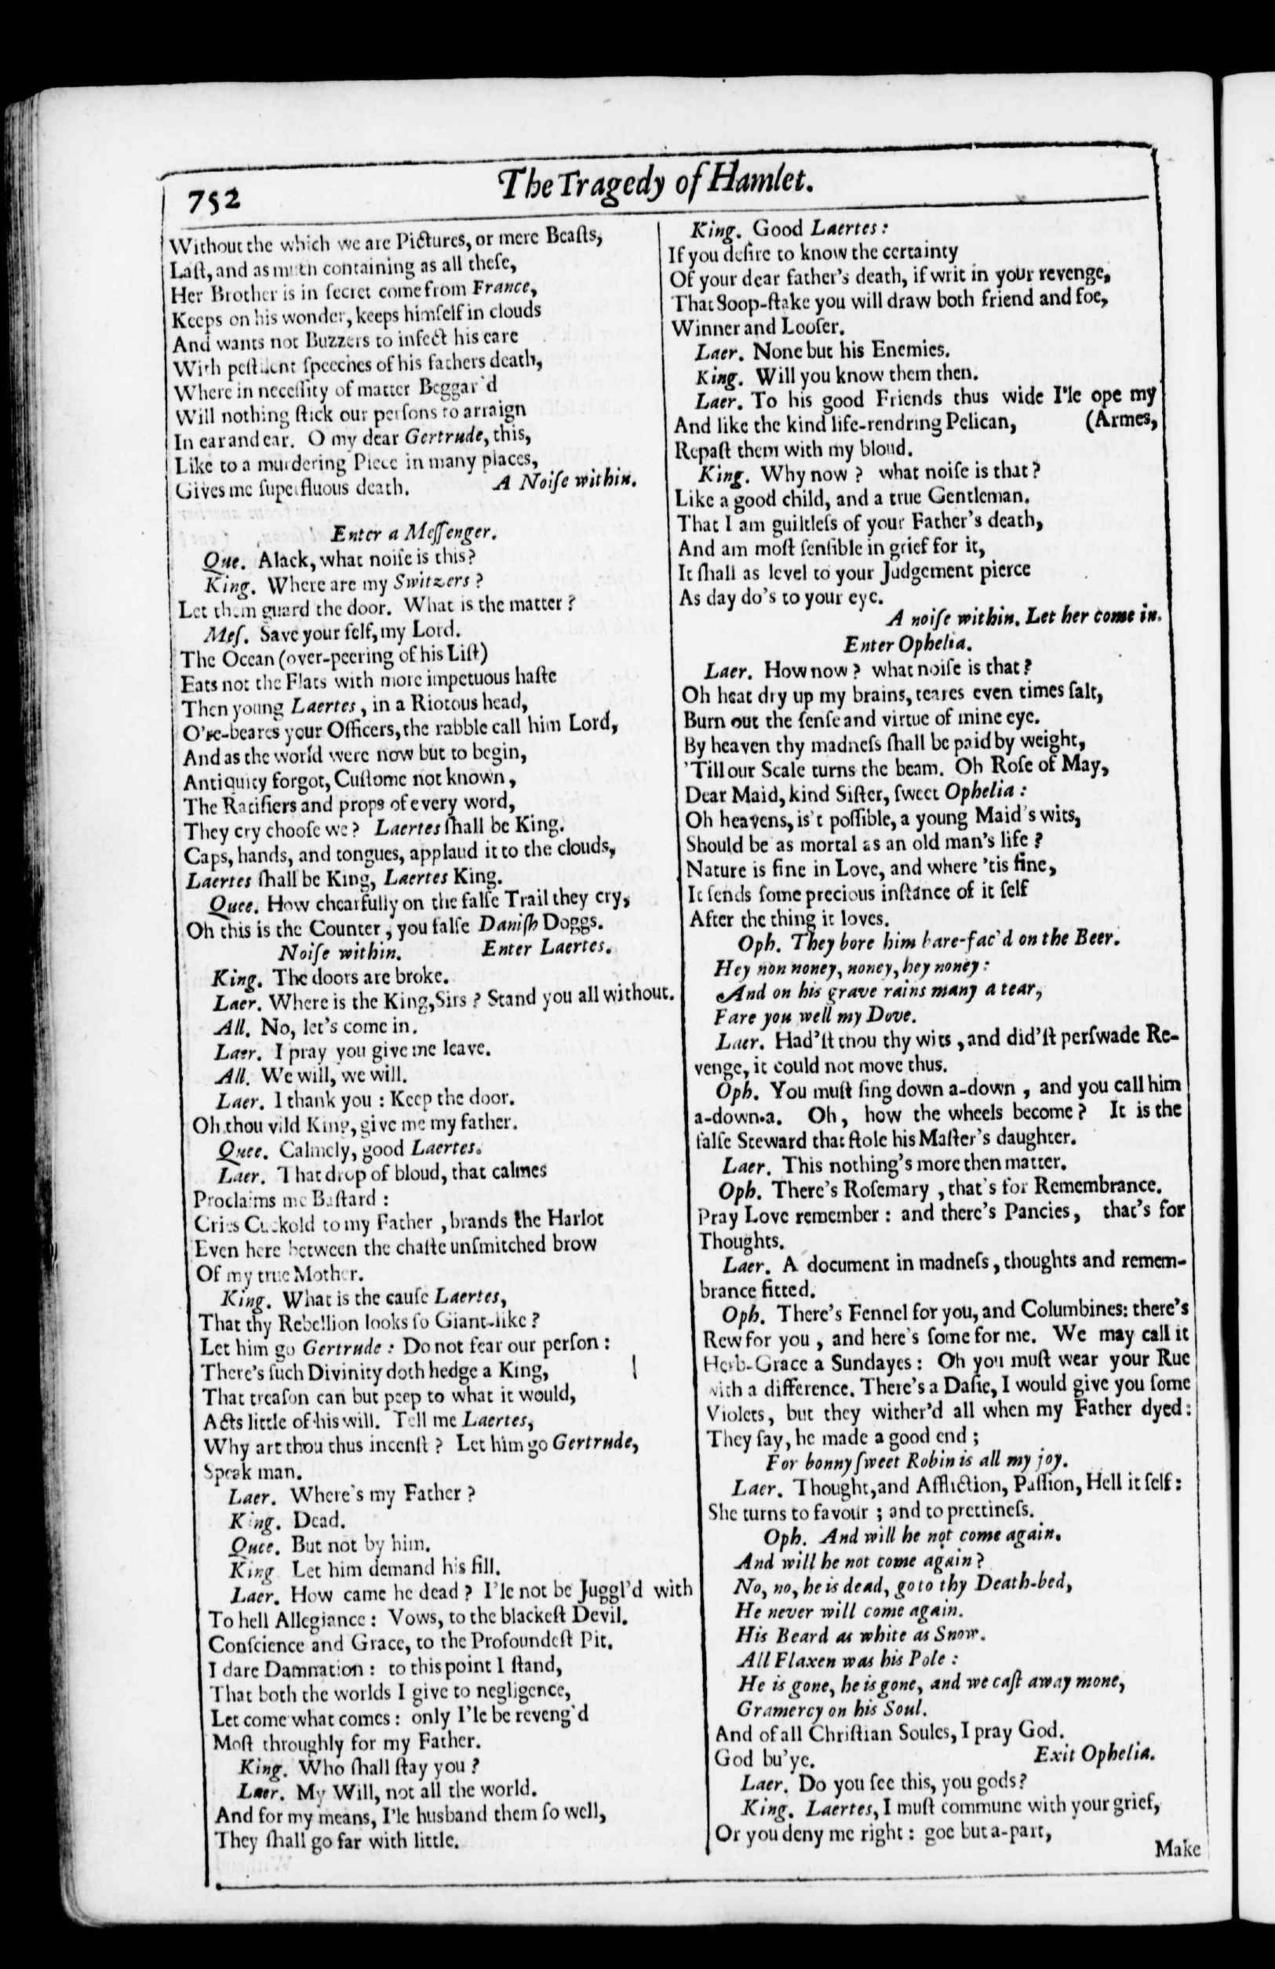 752
The Tragedy of Hamlet.
Without the which we are Pictures, or mere Beaſts,
Laſt, and as much containing as all theſe,
Her Brother is in ſecret come from France,
Keeps on his wonder, keeps himſelf in clouds
And wants not Buzzers to infect his eare
With peſtilent ſpeeches of his fathers death,
Where in neceſſity of matter Beggar'd
Will nothing ſtick our perſons to arraign
In ear and ear. O my dear Gertrude, this,
Like to a murdering Piece in many places,
Gives me ſuperfluous death. A Noiſe within.
Enter a Meſſenger.
Que. Alack, what noiſe is this?
King. Where are my Switzers?
Let them guard the door. What is the matter?
Meſ. Save your ſelf, my Lord.
The Ocean (over-peering of his Liſt)
Eats not the Flats with more impetuous haſte
Then young Laertes, in a Riotous head,
O're-beares your Officers, the rabble call him Lord,
And as the world were now but to begin,
Antiquity forgot, Cuſtome not known,
The Ratifiers and props of every word,
They cry chooſe we? Laertes ſhall be King.
Caps, hands, and tongues, applaud it to the clouds,
Laertes ſhall be King, Laertes King.
Quee. How chearfully on the falſe Trail they cry,
Oh this is the Counter, you falſe Daniſh Doggs.
Noiſe within. Enter Laertes.
King. The doors are broke.
Laer. Where is the King, Sirs? Stand you all without.
All. No, let's come in.
Laer. I pray you give me leave.
All. We will, we will.
Laer. I thank you: Keep the door.
Oh thou vild King, give me my father.
Quee. Calmely, good Laertes.
Laer. That drop of bloud, that calmes
Proclaims me Baſtard:
Cries Cuckold to my Father, brands the Harlot
Even here between the chaſte unſmitched brow
Of my true Mother.
King. What is the cauſe Laertes,
That thy Rebellion looks ſo Giant-like?
Let him go Gertrude: Do not fear our perſon:
There's ſuch Divinity doth hedge a King,
That treaſon can but peep to what it would,
Acts little of his will. Tell me Laertes,
Why art thou thus incenſt? Let him go Gertrude,
Speak man.
Laer. Where's my Father?
King. Dead.
Quee. But not by him.
King Let him demand his fill.
Laer. How came he dead? I'le not be Juggl'd with
To hell Allegiance: Vows, to the blackeſt Devil.
Conſcience and Grace, to the Profoundeſt Pit.
I dare Damnation: to this point I ſtand,
That both the worlds I give to negligence,
Let come what comes: only I'le be reveng'd
Moſt throughly for my Father.
King. Who ſhall ſtay you?
Laer. My Will, not all the world.
And for my means, I'le husband them ſo well,
They ſhall go far with little.
King. Good Laertes:
If you deſire to know the certainty
Of your dear father's death, if writ in your revenge,
That Soop-ſtake you will draw both friend and foe,
Winner and Looſer.
Laer. None but his Enemies.
King. Will you know them then.
Laer. To his good Friends thus wide I'le ope my
And like the kind life-rendring Pelican, (Armes,
Repaſt them with my bloud.
King. Why now? what noiſe is that?
Like a good child, and a true Gentleman.
That I am guiltleſs of your Father's death,
And am moſt ſenſible in grief for it,
It ſhall as level to your Judgement pierce
As day do's to your eye.
A noiſe within. Let her come in.
Enter Ophelia.
Laer. How now? what noiſe is that?
Oh heat dry up my brains, teares even times ſalt,
Burn out the ſenſe and virtue of mine eye.
By heaven thy madneſs ſhall be paid by weight,
'Till our Scale turns the beam. Oh Roſe of May,
Dear Maid, kind Siſter, ſweet Ophelia:
Oh heavens, is't poſſible, a young Maid's wits,
Should be as mortal as an old man's life?
Nature is fine in Love, and where 'tis fine,
It ſends ſome precious inſtance of it ſelf
After the thing it loves.
Oph. They bore him bare-fac'd on the Beer.
Hey non noney, noney, hey noney:
And on his grave rains many a tear,
Fare you well my Dove.
Laer. Had'ſt thou thy wits, and did'ſt perſwade Re-
venge, it could not move thus.
Oph. You muſt ſing down a-down, and you call him
a-down-a. Oh, how the wheels become? It is the
falſe Steward that ſtole his Maſter's daughter.
Laer. This nothing's more then matter.
Oph. There's Roſemary, that's for Remembrance.
Pray Love remember: and there's Pancies, that's for
Thoughts.
Laer. A document in madneſs, thoughts and remem-
brance fitted.
Oph. There's Fennel for you, and Columbines: there's
Rew for you, and here's ſome for me. We may call it
Herb-Grace a Sundayes: Oh you muſt wear your Rue
with a difference. There's a Daſie, I would give you ſome
Violets, but they wither'd all when my Father dyed:
They ſay, he made a good end;
For bonny ſweet Robin is all my joy.
Laer. Thought, and Affliction, Paſſion, Hell it ſelf:
She turns to favour; and to prettineſs.
Oph. And will he not come again.
And will he not come again?
No, no, he is dead, go to thy Death-bed,
He never will come again.
His Beard as white as Snow.
All Flaxen was his Pole:
He is gone, he is gone, and we caſt away mone,
Gramercy on his Soul.
And of all Chriſtian Soules, I pray God.
God bu'ye. Exit Ophelia.
Laer. Do you ſee this, you gods?
King. Laertes, I muſt commune with your grief,
Or you deny me right: goe but a-part,
Make